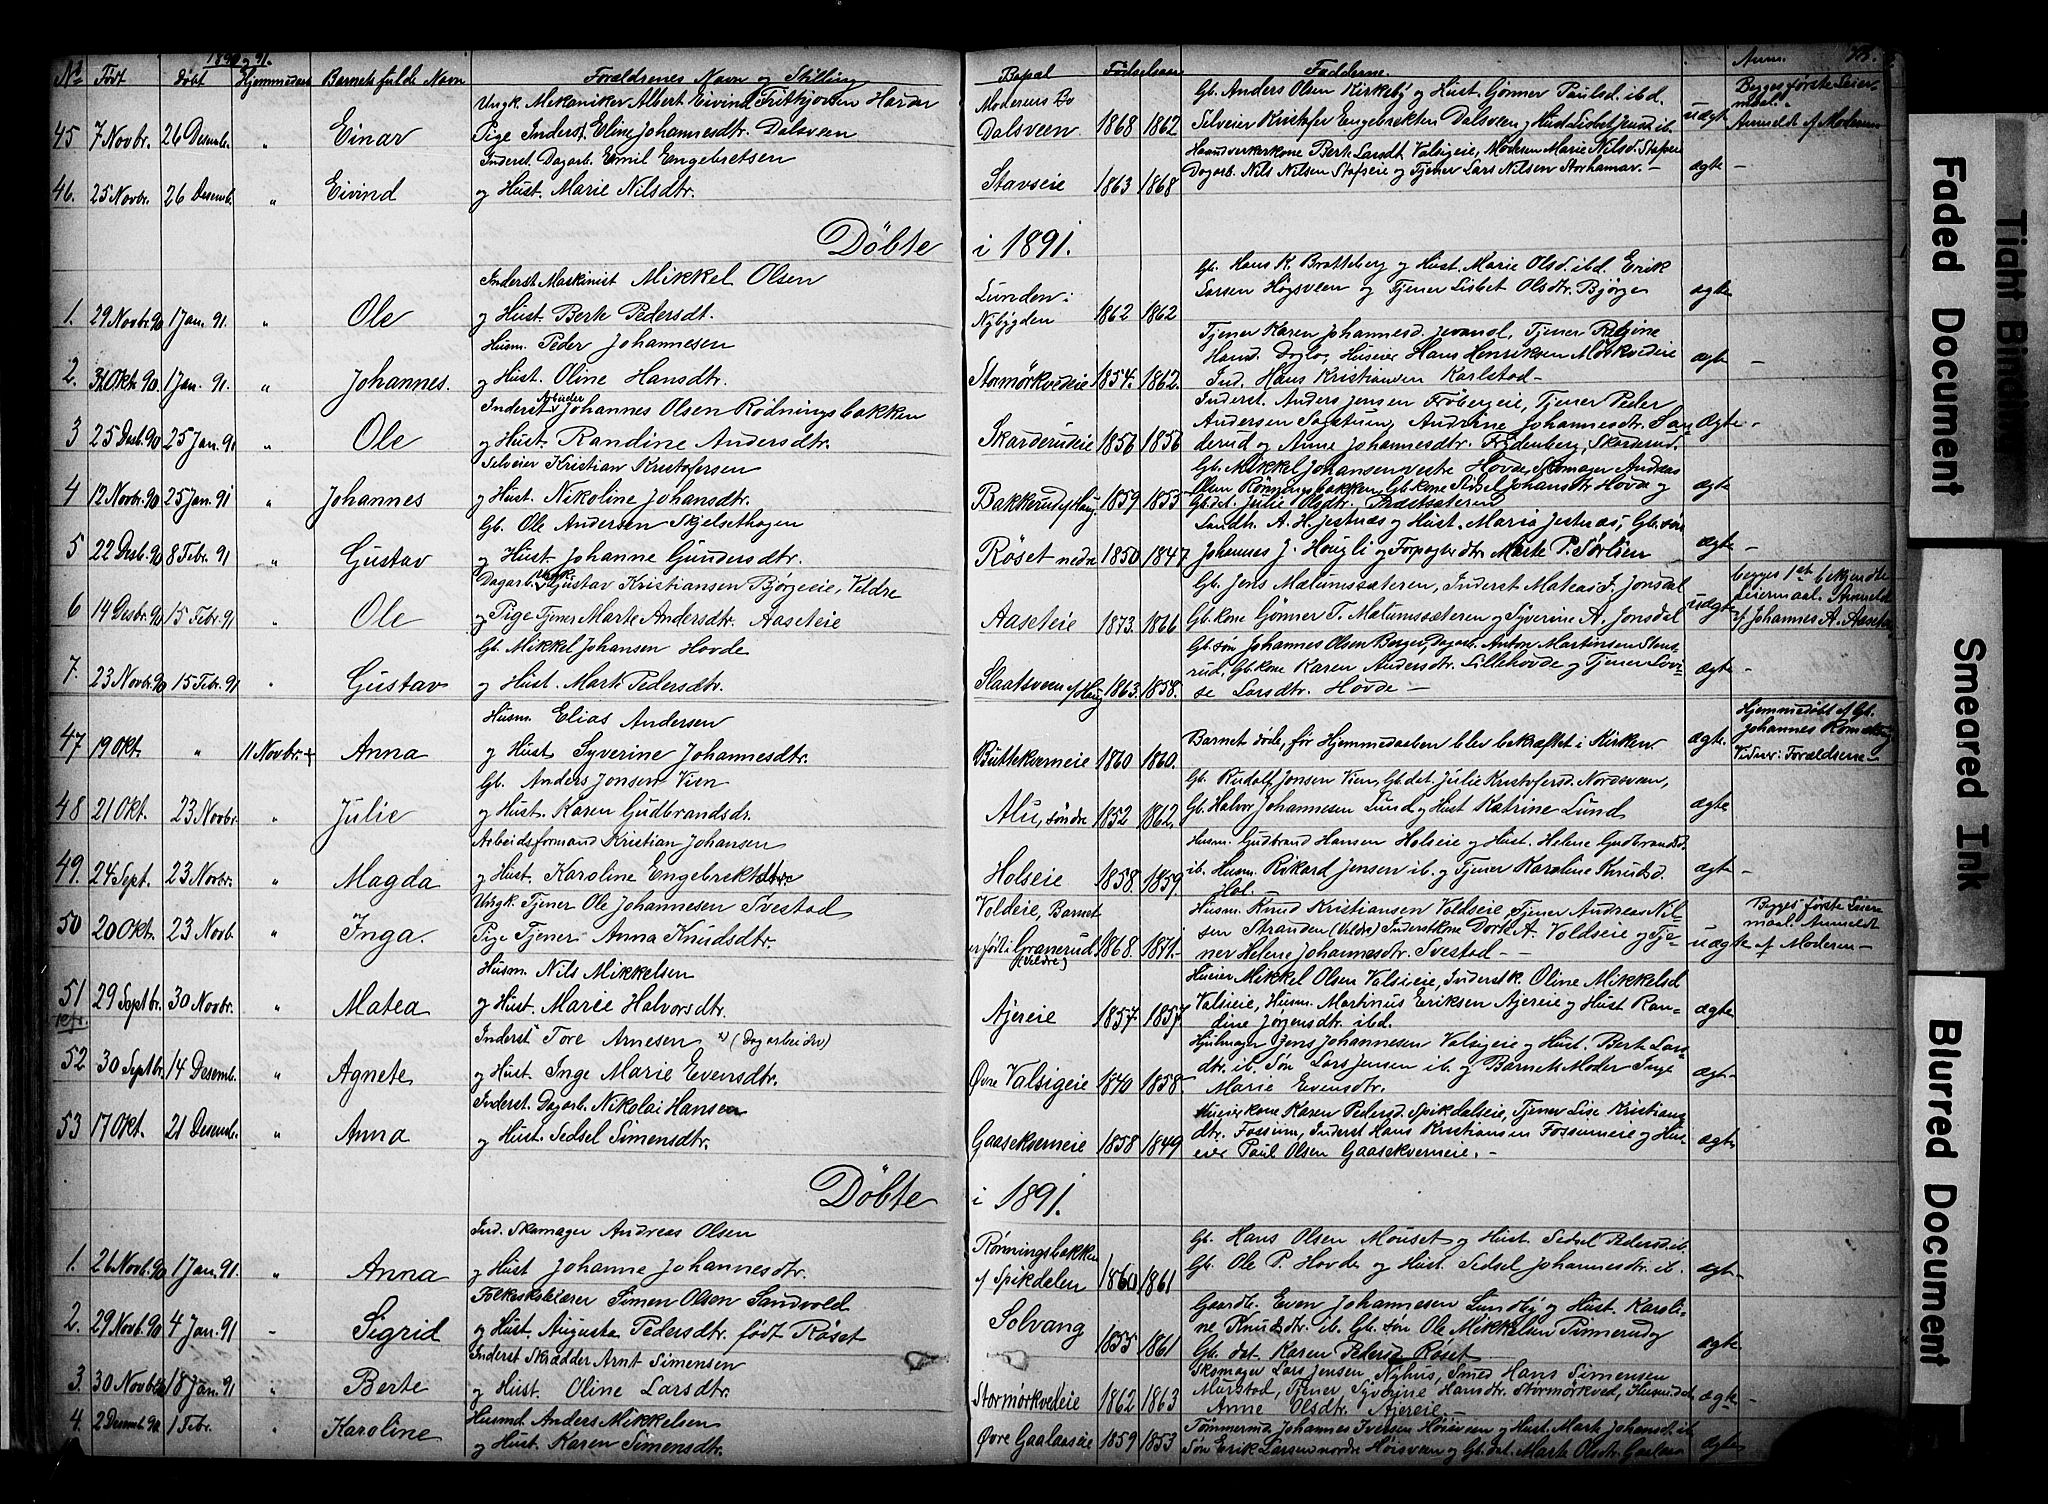 1890-91.
No Født Døbt Hjemmedøbt Barnets fulde Navn Forældrenes Navn og Stilling Bopæl Fødselsaar Fadderne. Anm.
45 7 Novbr. 26 Desemb. " Einar Ungk. Mekaniker Albert Eivind Frithjofsen Hamar
Pige Inderst. Eline Johannesdtr. Dalsveen
Moderens Bo
Dalsveen 1868 1862
Gb. Anders Olsen Kirkeby og Hust. Gønner Paulsd. ibd.
Selveier Kristofer Engebretsen Dalsveen og Hust Lisbet Jensd. ib.
uægt
Begges første Leiermaal.
Anmeldt af Moderen
46. 25 Novbr. 26 Desemb. " Eivind Inderst. Dagarb. Emil Engebretsen
og Hust. Marie Nilsdtr.
Stavseie 1863 1868
Haandverkerkone Berte Larsdt. Valsigeie, Marie Nilsd. Stafseie
Dagarb. Nils Nilsen Stafseie og Tjener Lars Nilsen Storhamar. -
ægte -
Døbte i 1891.
1. 29 Novbr. 90 1 Jan. 91. " Ole Inderst Maskinist Mikkel Olsen
og Hust. Berte Pedersdt.
Lunden i
Nybygden 1862 1862
Gb. Hans K. Bratteberg og Hust. Marie Olsd. ibd. Erik
Larsen Høgsveen og Tjener Lisbet Olsdtr. Bjørge
ægte
2. 31 Oktr. 90 1 Jan. 91. " Johannes. Husm. Peder Johannesen
og Hust. Oline Hansdtr.
Stormørkvedeie 1854. 1862.
Tjener Karen Johannesd. Tjener
Hansd. og Huseier Hans Henriksen Mørkvedeie
Ind. Hans Kristiansen Karlstad -
ægte -
3 25 Desb. 90 25 Jan. 91 " Ole Inderst Arbeider Johannes Olsen Rødningsbakken
og Hust. Randine Andersdtr.
Skarderudeie 1856 1856
Inderst. Anders Jensen Frøbergeie, Tjener Peder
Andersen Sagatuen, Andrine Johannesdtr. San-
derud og Anne Johannesdtr. Frydenberg, Skarderud.
Ægte -
4 12 Novbr. 90 25 Jan. 91 " Johannes Selveier Kristian Kristofersen
og Hust. Nikoline Johansdtr.
Bakkerud af Haug. 1859 1853
Gb. Mikkel Johansen vestre Hovde, Skomager Andreas
Olsen Rønningsbakken, Gb. kone Sidsel Johansdtr Hovde og
Gb. det. Julie Olsdtr. Præstsæteren
ægte -
5 22 Desb. 90 8 Febr. 91 " Gustav Gb. Ole Andersen Skjelsethagen
og Hust Johanne Gundersdtr.
Røset nedre 1850 1847
Landh. A. H. Jestnæs og Hust. Maria Jestnæs, Gb. søn
Johannes J. Hougli og Forpagterdtr. Marte P. Sørlien
ægte -
6 14 Desbr. 90 15 Febr. 91 " Ole Dagarb. Ungk. Gustav Kristiansen Bjørgeeie, Veldre
og Pige Tjener Marte Andersdtr. Aaseteie
Aaseteie 1873. 1866
Gb. Jens Mælumssæteren, Inderst Mateas J. Jonsdal
Gb. kone Gønner T. Mælumssæteren og Syverine A. Jonsdal
uægte
begges 1st bekjendte
Leiermaal. Anmeldt
af Johannes A. Aaseteie
7. 23 Novbr. 90 15 Febr. 91 " Gustav Gb. Mikkel Johansen Hovde
og Hust. Marte Pedersdtr.
Slaatsveen af Haug 1863. 1858.
Gb. søn Johannes Olsen Berger, Dagarb. Anton Martinsen Stens-
rud, Gb. kone Karen Andersdtr. Lillehovde og Tjener Lovi-
se Larsdtr. Hovde -
ægte -
47 19 Okt. " 11 Novbr. + Anna Husm. Elias Andersen
og Hust Syverine Johannesdtr.
Buttekverneie 1860 1860.
Barnet døde, før Hjemmedaaben blev bekræftet i Kirken.
ægte.
Hjemmedøbt af Gb.
Johannes
Vidner: Forældrene -
48 21 Okt. 23 Novbr. " Julie Gb. Anders Jonsen Vien
og Hust. Karen Gudbrandsdr.
Alu, søndre 1852 1862.
Gb. Rudolf Jonsen Vien, Gb. det. Julie Kristofersd. Nordsveen,
Gb. Halvor Johannesen Lund og Hust Katrine Lund
ægte
49. 24 Sept. 23 Novbr. " Magda Arbeidsformand Kristian Johansen
og Hust. Karoline Engebretsdtr.
Holseie 1858. 1859.
Husm. Gudbrand Hansen Holseie og Hust. Helene Gudbrandsd.
ib. Husm. Rikard Jensen ib. og Tjener Karoline Knudsd.
Hol.
ægte -
50 20 Okt. 23 Novb. " Inga. Ungk. Tjener Ole Johannesen Svestad
Pige Tjener Anna Knudsdtr.
Voldeie, Barnet
er født i Granerud (Veldre) 1868. 1871. -
Husm. Knud Kristiansen Voldseie, Tjener Andreas Nil-
sen Stranden (Veldre) Inderstkone Dorte A. Voldseie og Tje-
ner Helene Johannesdtr. Svestad - -
uægte
Begges første Leier-
maal. Anmeldt
af Moderen -
51 29 Septbr. 30 Novbr. " Matea Husm. Nils Mikkelsen
og Hust. Marie Halvorsdtr.
Ajereie 1857. 1857.
Huseier Mikkel Olsen Valsieie, Inderstk. Oline Mikkelsd
Valsieie, Husm. Martinus Eriksen Ajereie og Hust Ran-
dine Jørgensdtr. ibd.
ægte
52 30 Septbr. 14 Desemb. " Agnete Inderst Tore Arnesen *) (Dagarbeider)
og Hust. Inge Marie Evensdtr.
Øvre Valsigeie 1840 1858.
Hjulmager Jens Johannesen Valsigeie og Hust. Berte Lars-
dtr. ib. Søn Lars Jensen ib. og Barnets Moder Inge
Marie Evensdtr.
ægt -
53 17 Okt. 21 Desemb. " Anna Inderst. Dagarb. Nikolai Hansen
og Hust. Sedsel Simensdtr.
Gaasekverneie 1858 1849
Huseierkone Karen Pedersd. Spikdalseie, Tjener Lise Kristians-
dtr. Fossum, Inderst Hans Kristiansen Fossumeie og Hus-
eier Paul Olsen Gaasekverneie. -
ægte
Døbte i 1891.
1. 26 Novb. 90 1 Jan. 91. " Anna Ind. Skomager Andreas Olsen
og Hust Johanne Johannesdtr.
Rønningsbakken
af Spikdalen 1860 1861
Gb. Hans Olsen Mouset og Hust. Sedsel Pedersd. ib.
Gb. Ole P. Hovde og Hust. Sedsel Johannesdtr. ib.
ægt -
2. 29 Novb. 90 4 Jan. 91 - Sigrid Folkeskolelærer Simen Olsen Sandvold
og Hust. Augusta Pedersdtr. født Røset
Solvang 1855 1861
Gaardb. Even Johannesen Lundby og Hust. Karoli-
ne Knudsdtr. ib. Gb. søn Ole Mikkelsen Finnerud og
Gb. det. Karen Pedersd Røset
ægte
3. 30 Novb. 90 18 Jan. 91 " Berte Inderst Skrædder Arnt Simensen
og Hust. Oline Larsdtr.
Stormørkvedeie 1862 1863
Skomager Lars Jensen Nyhus, Smed Hans Simensen
Murstad, Tjener Syverine Hansdtr. Stormørkved, Husm. det.
Anne Olsdtr. Ajereie. -
ægte -
4. 2 Desemb. 90 1 Febr. " Karoline Husmd. Anders Mikkelsen
og Hust. Karen Simensdtr.
Øvre Gaalaaseie 1859 1853
Tømmermd. Johannes Iversen Høisveen og Hust. Marte Johansdt. ib.
Søn Erik Larsen nordre Høisveen og Gb. det. Marte Olsdtr. Gaalaas
ægte
Faded Document
Tight Binding
Smeared Ink
Blurred Document